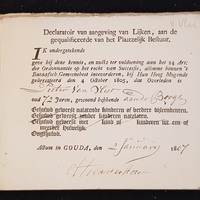 Declaratoir van aangeving van Lijken, aan de
gequalificeerde van het Plaatzelijk Bestuur.
IK ondergetekende
geve bij deze kennis, en zulks ter voldoening aan het 24 Art:
der Ordonnantie op het recht van Successie, alomme binnen 't
Bataafsch Gemeenebest intevoorderen, bij Hun Hoog Mogende
gedecreteerd den 4 October 1805, dat Overleden is
Pieter van Vliet
oud 72 Jaren, gewoond hebbende
Gehuwd geweest nalatende kinderen of verdere descendenten.
Gehuwd geweest zonder kinderen.
Gehuwd geweest met kinderen uit een of
meerder Huwelijk.
Ongehuwd.
Actum in GOUDA, den 2 January 1807